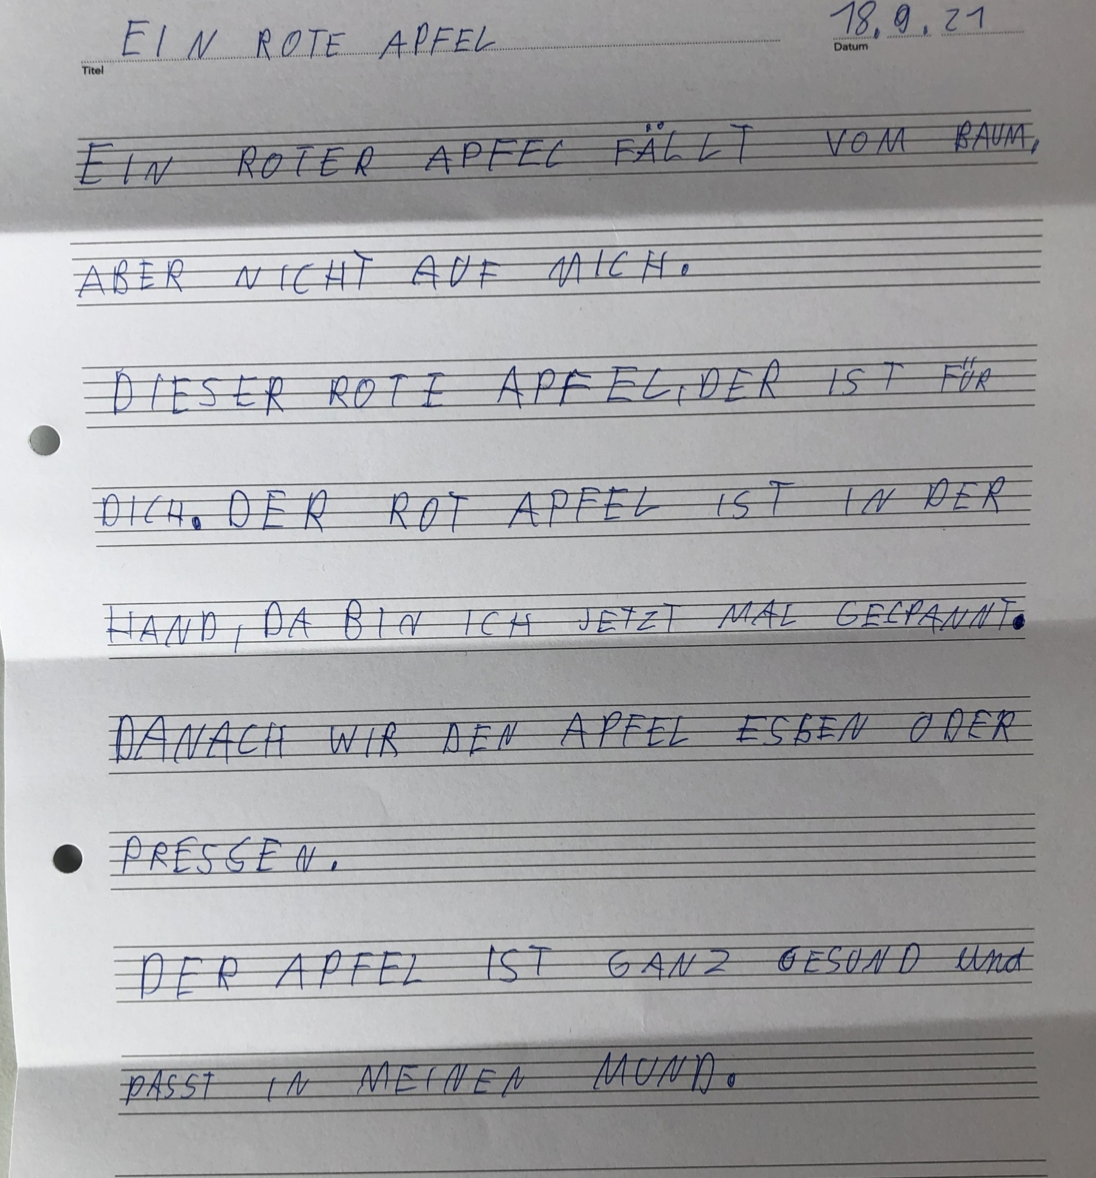 EIN ROTE APFEL 18.9.21
Titel Datum
EIN ROTER APFEL FÄLLT VOM BAUM,
ABER NICHT AUF MICH.
DIESER ROTE APFEL, DER IST FÜR
DICH. DER ROT APFEL IST IN DER
HAND, DA BIN ICH JETZT MAL GESPANNT.
DANACH WIR DEN APFEL ESSEN ODER
PRESSEN.
DER APFEL IST GANZ GESUND und
PASST IN MEINEN MUND.